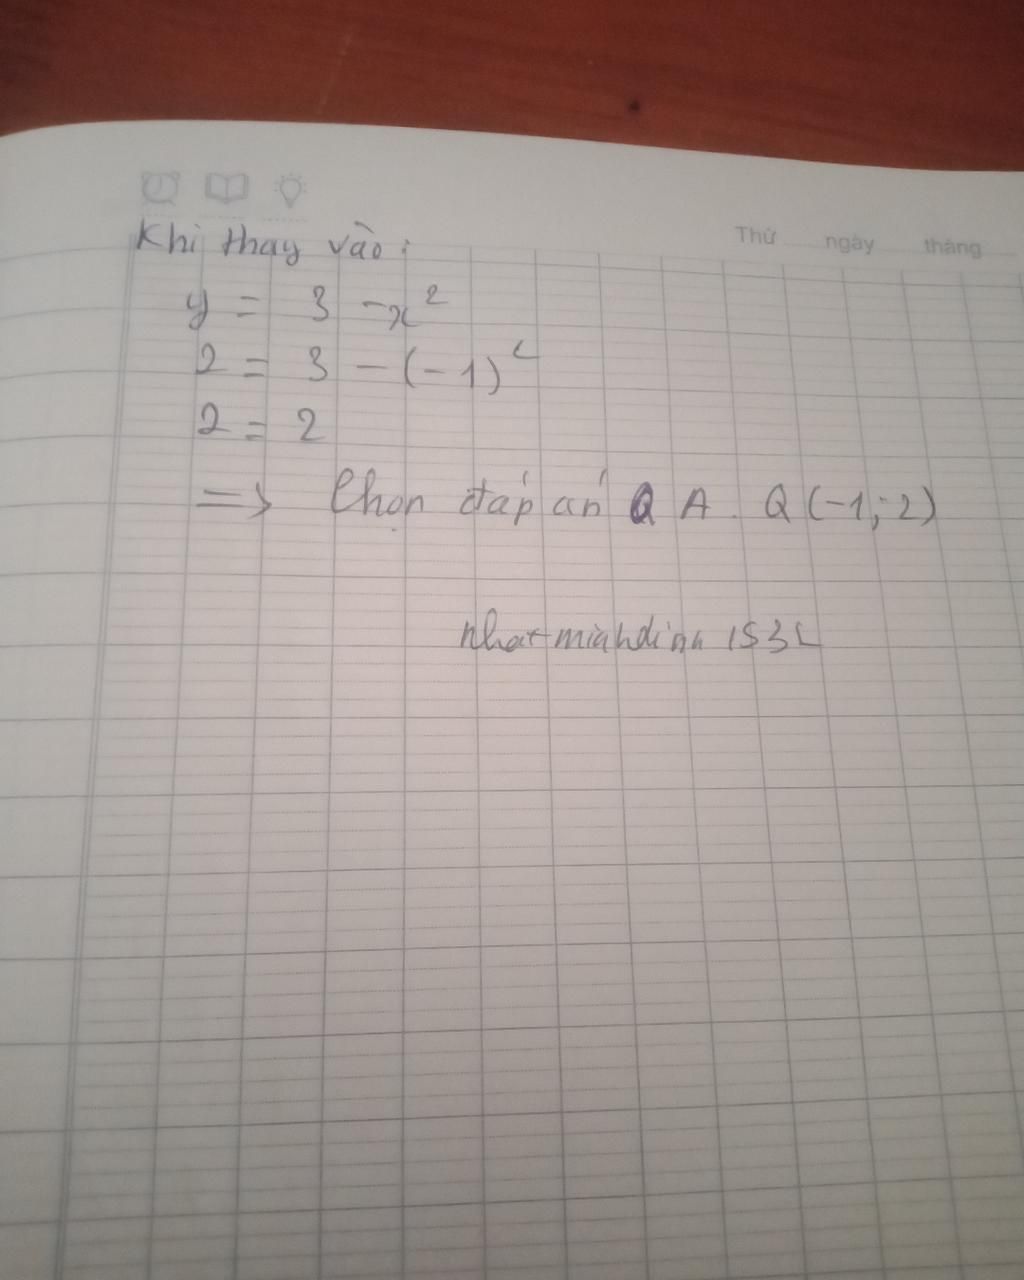 Thứ ngày tháng
Khi thay vào:
y = 3 - x²
2 = 3 - (-1)²
2 = 2
=> Chọn đáp án Q A. Q (-1; 2)
nhatminhdinh 1532